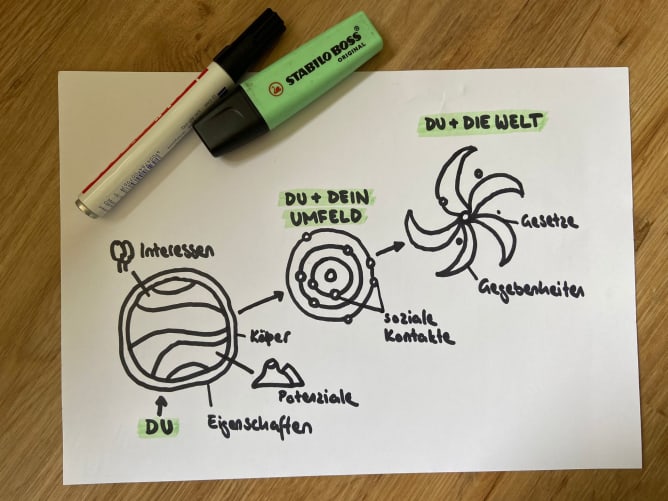 STABILO BOSS
ORIGINAL
DU + DIE WELT
DU + DEIN
UMFELD
Gesetze
Interessen
Gegebenheiten
soziale
Kontakte
Köper
Potenziale
DU
Eigenschaften